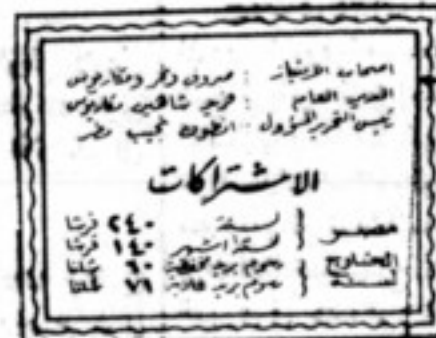 اصحاب الامتياز : صروف ونمر ومكاريوس
المدير العام : فريد شاهين مكاريوس
رئيس التحرير المسؤول : انطون نجيب مطر
الاشتراكات
مصر
لسنة ٢٤٠ قرشا
لستة اشهر ١٤٠ قرشا
الخارج لسنة
برسوم بريد مخفضة ٦٠ شلنا
برسوم بريد عادية ٧٦ شلنا